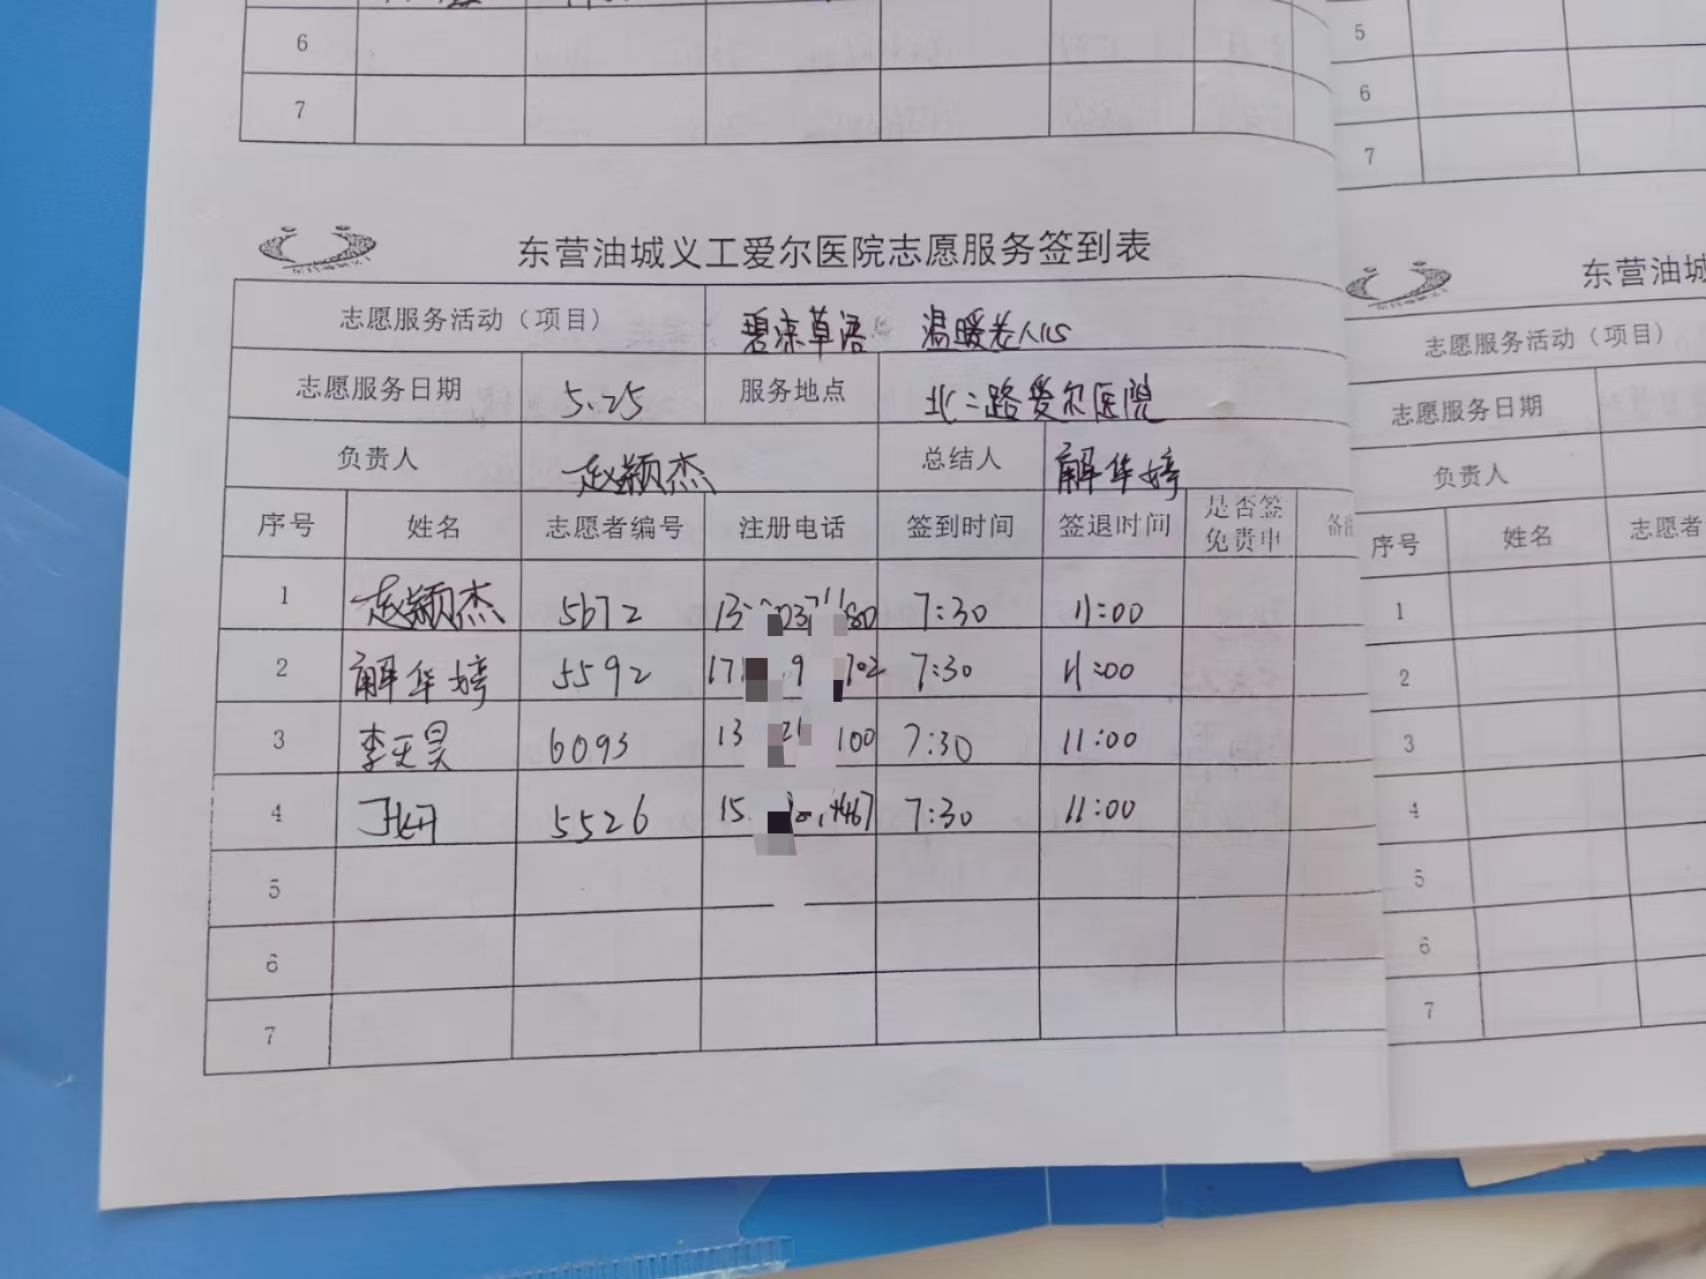 6
7
东营油城义工爱尔医院志愿服务签到表
志愿服务活动（项目） 碧凉草语 温暖老人心
志愿服务日期 5.25 服务地点 北二路爱尔医院
负责人 赵颖杰 总结人 解华婷
序号 姓名 志愿者编号 注册电话 签到时间 签退时间 是否签免费中 备注
1 赵颖杰 5672 7:30 11:00
2 解华婷 5592 7:30 11:00
3 李天昊 6093 7:30 11:00
4 5526 7:30 11:00
5
6
7
5
6
7
东营油城
志愿服务活动（项目）
志愿服务日期
负责人
序号 姓名 志愿者
1
2
3
4
5
6
7